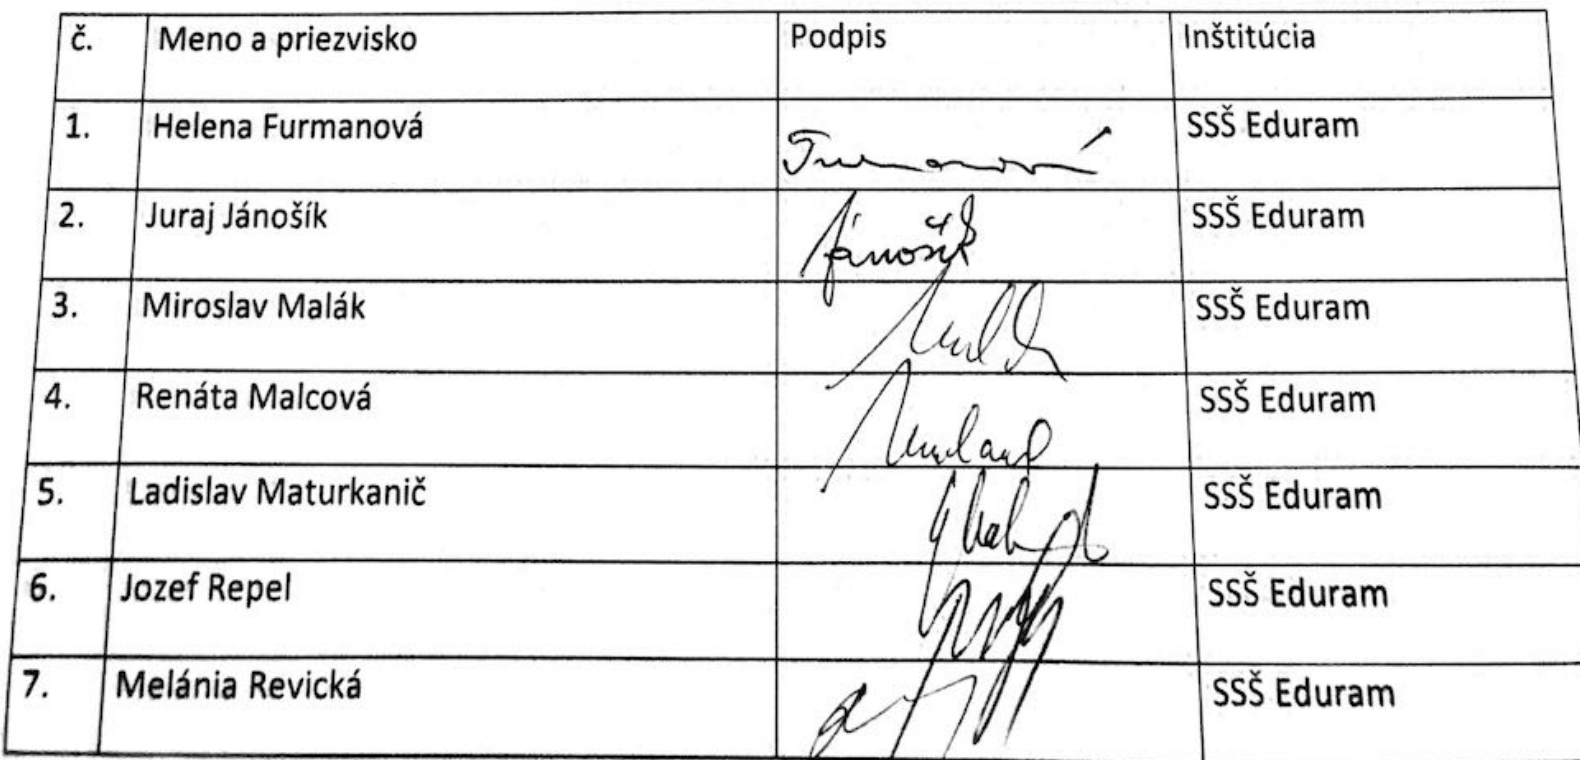 č. Meno a priezvisko Podpis Inštitúcia
1. Helena Furmanová SSŠ Eduram
2. Juraj Jánošík Jánošík SSŠ Eduram
3. Miroslav Malák SSŠ Eduram
4. Renáta Malcová SSŠ Eduram
5. Ladislav Maturkanič SSŠ Eduram
6. Jozef Repel SSŠ Eduram
7. Melánia Revická SSŠ Eduram